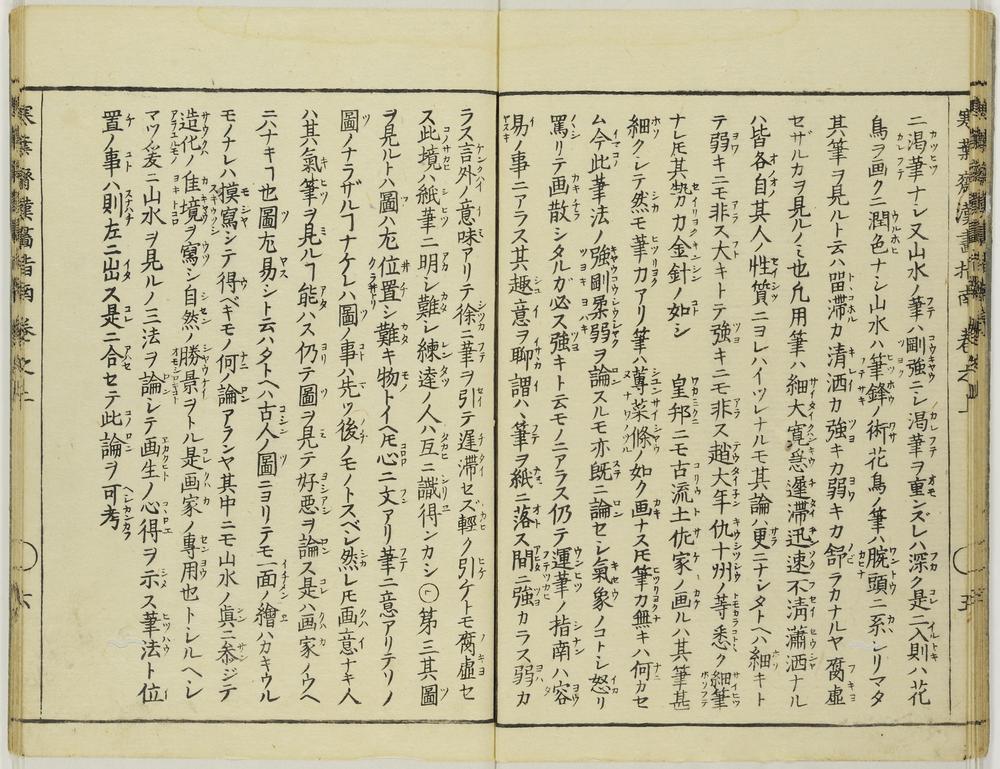 ニ渇筆ナシ又山水ノ筆ハ剛強ニシ渇筆ヲ重ンズレハ深ク是ニ入則ハ花
鳥ヲ画クニ潤色ナシ山水ハ筆鋒ノ術花鳥ノ筆ハ腕頭ニ系レリマタ
其筆ヲ見ルト云ハ畄滞カ清洒カ強キカ弱キカ舒ラカナルヤ腐虚
セザルカヲ見ルノミ也凢用筆ハ細大寛急遲滞迅速不淸瀟洒ナル
ハ皆各自其人ノ性質ニヨレハイツレナルモ其論ハ更ニナシタトヘハ細キト
テ弱キニモ非ス大キトテ強キニモ非ス趙大年仇十州ノ等悉ク細筆
ナレ𪜈其勢力金針ノ如シ 皇邦ニモ古流土佐家ノ画ルハ其筆甚
細クシテ然モ筆力アリ筆ハ蓴菜條ノ如ク画ナス𪜈筆力無キハ何カセ
ム今此筆法ノ強剛柔弱ヲ論スルモ亦既ニ論セシ氣象ノコトシ怒リ
罵リテ画散シタルカ必ス強キト云モノニアラス仍テ運筆ノ指南ハ容
易ノ事ニアラス其趣意ヲ聊謂ハヽ筆ヲ紙ニ落ス間ニ強カラス弱カ
ラス言外ノ意味アリテ徐ニ筆ヲ引テ遲滞セズ輕ク引ケトモ腐虚セ
ス此境ハ紙筆ニ明シ難シ練逹ノ人ハ互ニ識得ンカシ〇第三其圖
ヲ見ルトハ圖尤位置シ難キ物トイヘ𪜈心ニ文アリ筆ニ意アリテソノ
圖ノナラザルヿナケレハ圖ノ事ハ先ツ後ノモノトスベシ然レ𪜈画意ナキ人
ハ其氣筆ヲ見ルヿ能ハス仍テ圖ヲ見テ好悪ヲ論ス是ハ画家ノウヘ
ニハナキヿ也圖尤易シト云ハタトヘハ古人ノ圖ニヨリテモ一面ノ繪ハカキウル
モノナレハ摸寫シテ得ベキモノ何ノ論アランヤ其中ニモ山水ノ眞ニ叅ジテ
造化ノ佳境ヲ寫シ自然ノ勝景ヲトル是画家ノ專用也トシルヘシ
マツ爰ニ山水ヲ見ルノ三法ヲ論シテ画生ノ心得ヲ示ス筆法ト位
置ノ事ハ則左ニ出ス是ニ合セテ此論ヲ可考